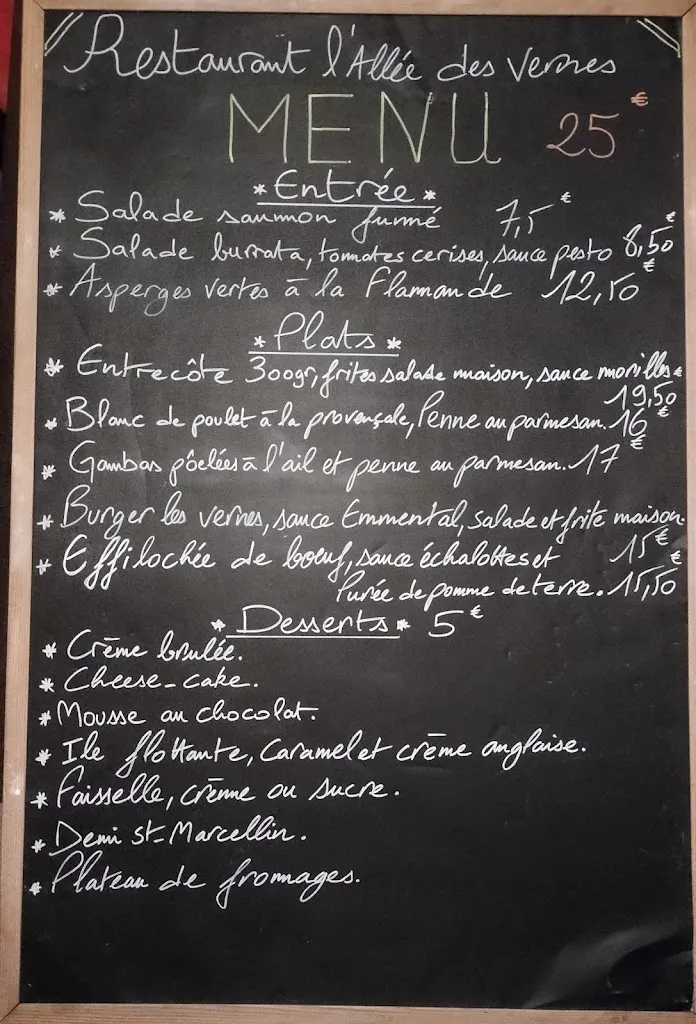 Restaurant l'Allée des vernes
MENU 25€
* Entrée *
* Salade saumon fumé 7,5€
* Salade burrata, tomates cerises, sauce pesto 8,50€
* Asperges vertes à la Flamande 12,50€
* Plats *
* Entrecôte 300gr, frites salade maison, sauce morilles
19,50€
* Blanc de poulet à la provençale, Penne au parmesan. 16€
* Gambas pôelées à l'ail et penne au parmesan. 17€
* Burger les vernes, sauce Emmental, salade et frite maison.
15€
* Effilochée de boeuf, sauce échalottes et
Purée de pomme de terre. 15,50€
* Desserts * 5€
* Crème brulée.
* Cheese-cake.
* Mousse au chocolat.
* Ile flottante, Caramel et crème anglaise.
* Faisselle, crème ou sucre.
* Demi st-Marcellin.
* Plateau de fromages.